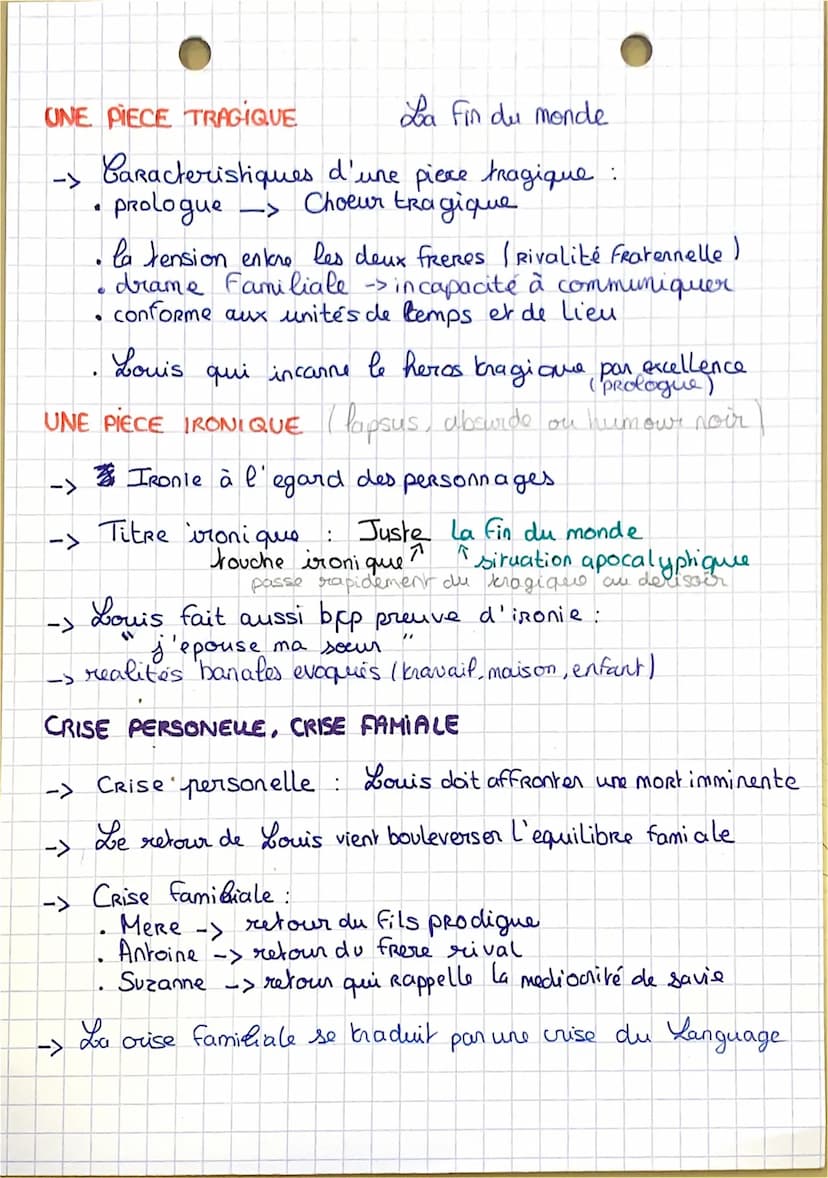 UNE PIECE TRAGIQUE La fin du monde
-> Caracteristiques d'une piece tragique :
• prologue -> Choeur tragique
• la tension entre les deux freres (Rivalité fraternelle)
• drame familiale -> incapacité à communiquer
• conforme aux unités de temps et de lieu
• Louis qui incarne le heros tragique par excellence
(prologue)
UNE PIECE IRONIQUE (lapsus, absurde ou humour noir)
-> Ironie à l'egard des personnages
-> Titre ironique : Juste la fin du monde
touche ironique ↑ ↑ situation apocalyptique
passe rapidement du tragique au derisoir
-> Louis fait aussi bcp preuve d'ironie :
" j'epouse ma soeur "
-> realités banales evoqués (travail, maison, enfant)
CRISE PERSONELLE, CRISE FAMIALE
-> Crise personelle : Louis doit affronter une mort imminente
-> Le retour de Louis vient bouleverser l'equilibre famiale
-> Crise familiale :
• Mere -> retour du fils prodigue
• Antoine -> retour du frere rival
• Suzanne -> retour qui rappelle la mediocrité de savie
-> La crise familiale se traduit par une crise du Language